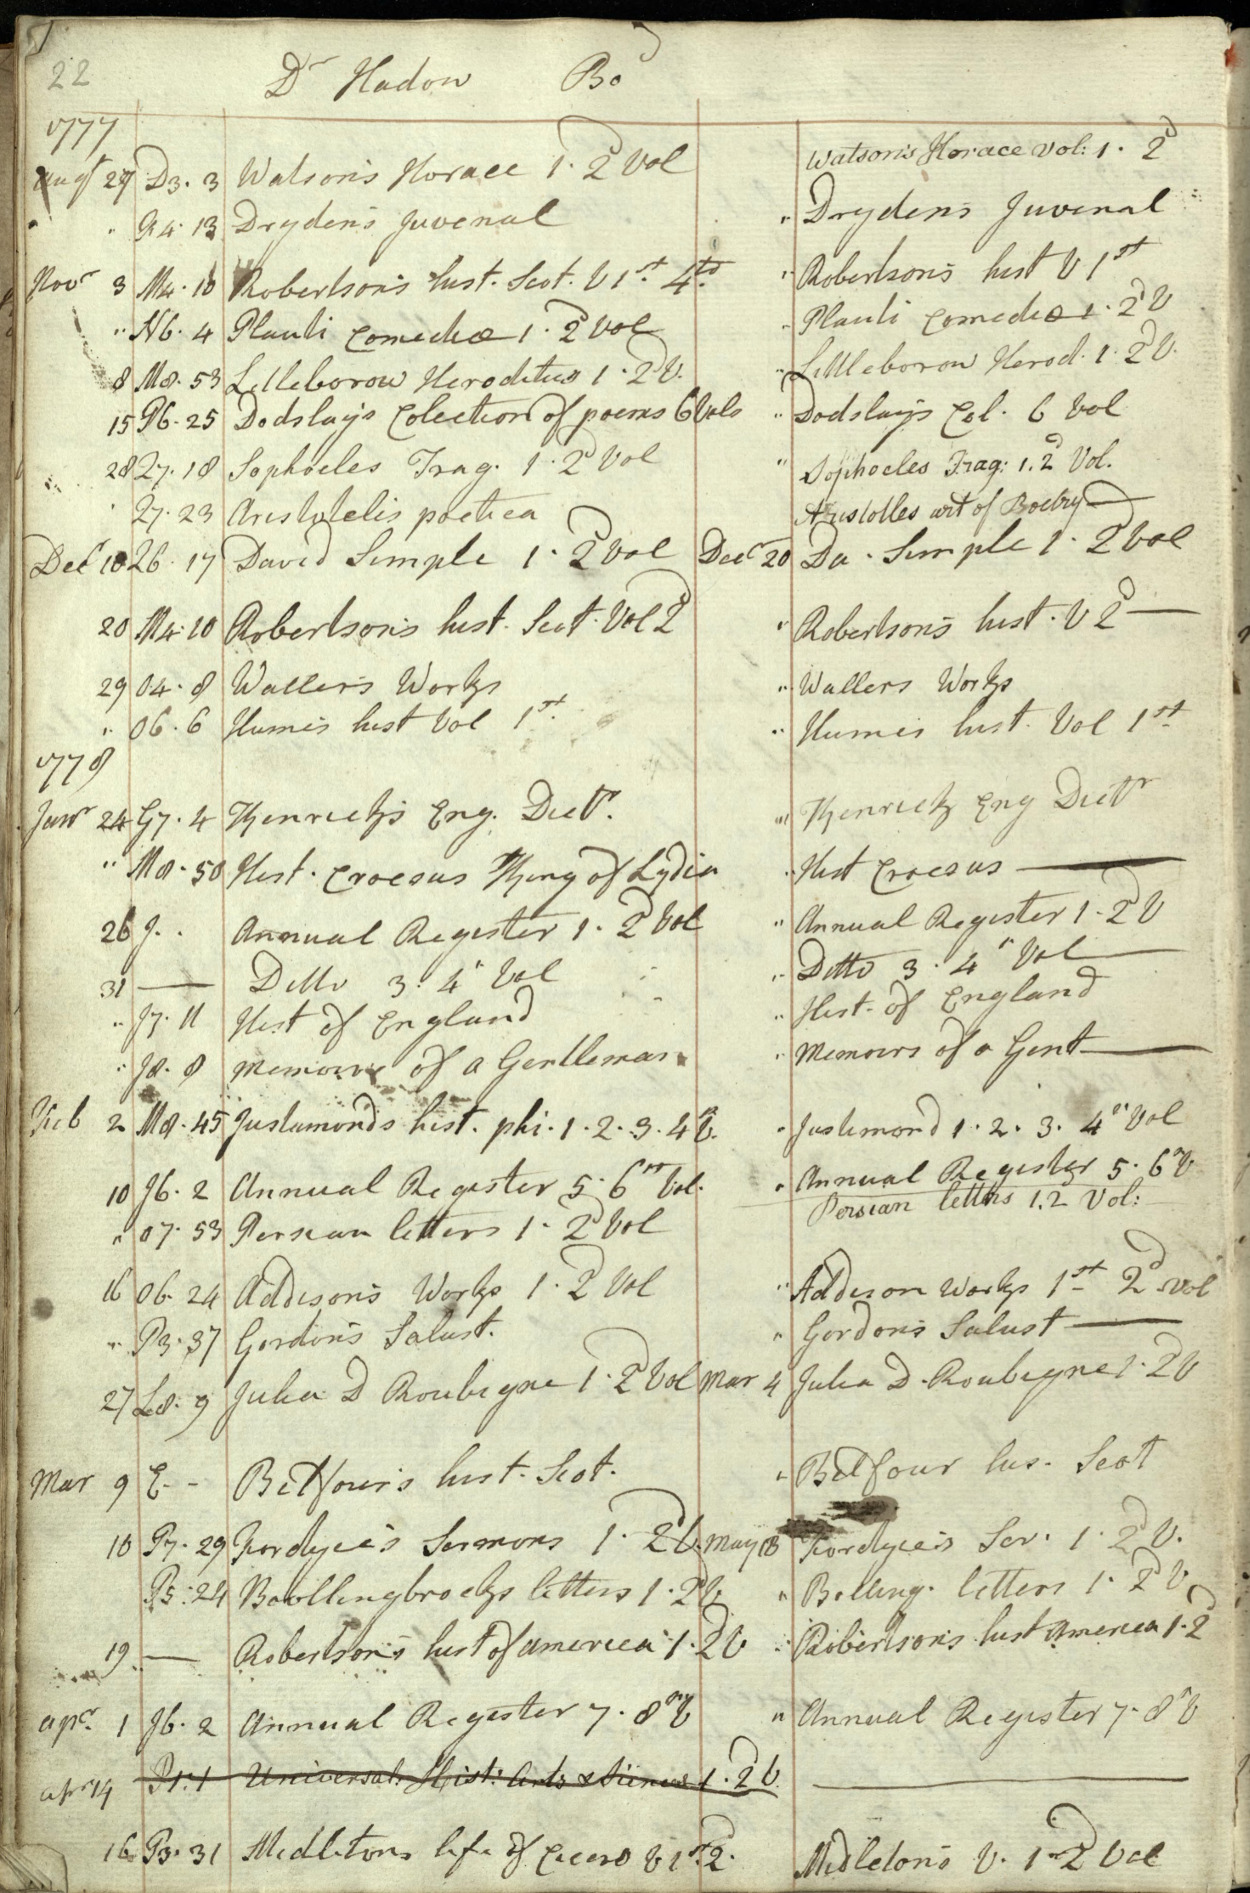 22 Dr Hadow Bod
1777
Augt 29 D3. 3 Watson's Horace 1. 2d Vol Watson's Horace vol: 1. 2d
" G4. 13 Dryden's Juvenal " Dryden's Juvenal
Novr 3 M4. 10 Robertson's hist. Scot. V 1st 4to " Robertson's hist V 1st
" N6. 4 Plauti Comediæ 1. 2d Vol " Plauti Comediæ 1. 2d V
8 M8. 53 Litleborow Heroditus 1. 2d V. " Littleborow Herod. 1. 2d V.
15 P6. 25 Dodslay's Colection of poems 6 Vols " Dodslay's Col. 6 Vol
28 27. 18 Sophocles Trag. 1. 2d Vol " Sophocles Trag: 1. 2d Vol.
" 27. 23 Aristotelis poetica Aristotles art of Poetry
Decr 10 26. 17 David Simple 1. 2d Vol Decr 20 Da. Simple 1. 2d Vol
20 M4. 10 Robertson's hist. Scot. Vol 2d " Robertson's hist. V 2d
29 O4. 8 Waller's Works " Wallers Works
" O6. 6 Hume's hist Vol 1st " Humes hist. Vol 1st
1778
Janr 24 G7. 4 Kenrick's Eng. Dictr. " Kenrick Eng Dictr
" M8. 50 Hist. Croesus King of Lydia " Hist Croesus
26 J. . Annual Register 1. 2d Vol " Annual Register 1. 2d V
31 — Ditto 3. 4th Vol " Ditto 3. 4th Vol
" J7. 11 Hist of England " Hist. of England
" J8. 8 Memoirs of a Gentleman " Memoirs of a Gent
Feb 2 M8. 45 Justamonds hist. phi. 1. 2. 3. 4th V. " Justimond 1. 2. 3. 4th Vol
10 J6. 2 Annual Register 5. 6th Vol. " Annual Register 5. 6th V
Persian letters 1. 2 Vol:
" O7. 53 Persian letters 1. 2d Vol
16 O6. 24 Addison's Works 1. 2d Vol " Addison Works 1st 2d vol
" P3. 37 Gordon's Salust. " Gordon's Salust
27 L8. 9 Julia D Roubigne 1. 2d Vol Mar 4 Julia D. Roubigne 1. 2d V
Mar 9 E. - Belfour's hist. Scot. " Belfour his. Scot
10 P7. 29 Fordyce's Sermons 1. 2d V. May 18 Fordyce's Ser. 1. 2d V.
P5. 24 Boollingbrocks letters 1. 2d V " Bolling. letters 1. 2d V
19 — Robertson's hist of america 1. 2d V " Robertson's hist America 1. 2d
apr. 1 J6. 2 Annual Register 7. 8th V " Annual Register 7. 8th V
apr 14 P1. 1 Universal Hist: Arts & Siences 1. 2d V
16 P3. 31 Midletons life of Cicero V 1st 2d. Midleton's V. 1st 2d Vol